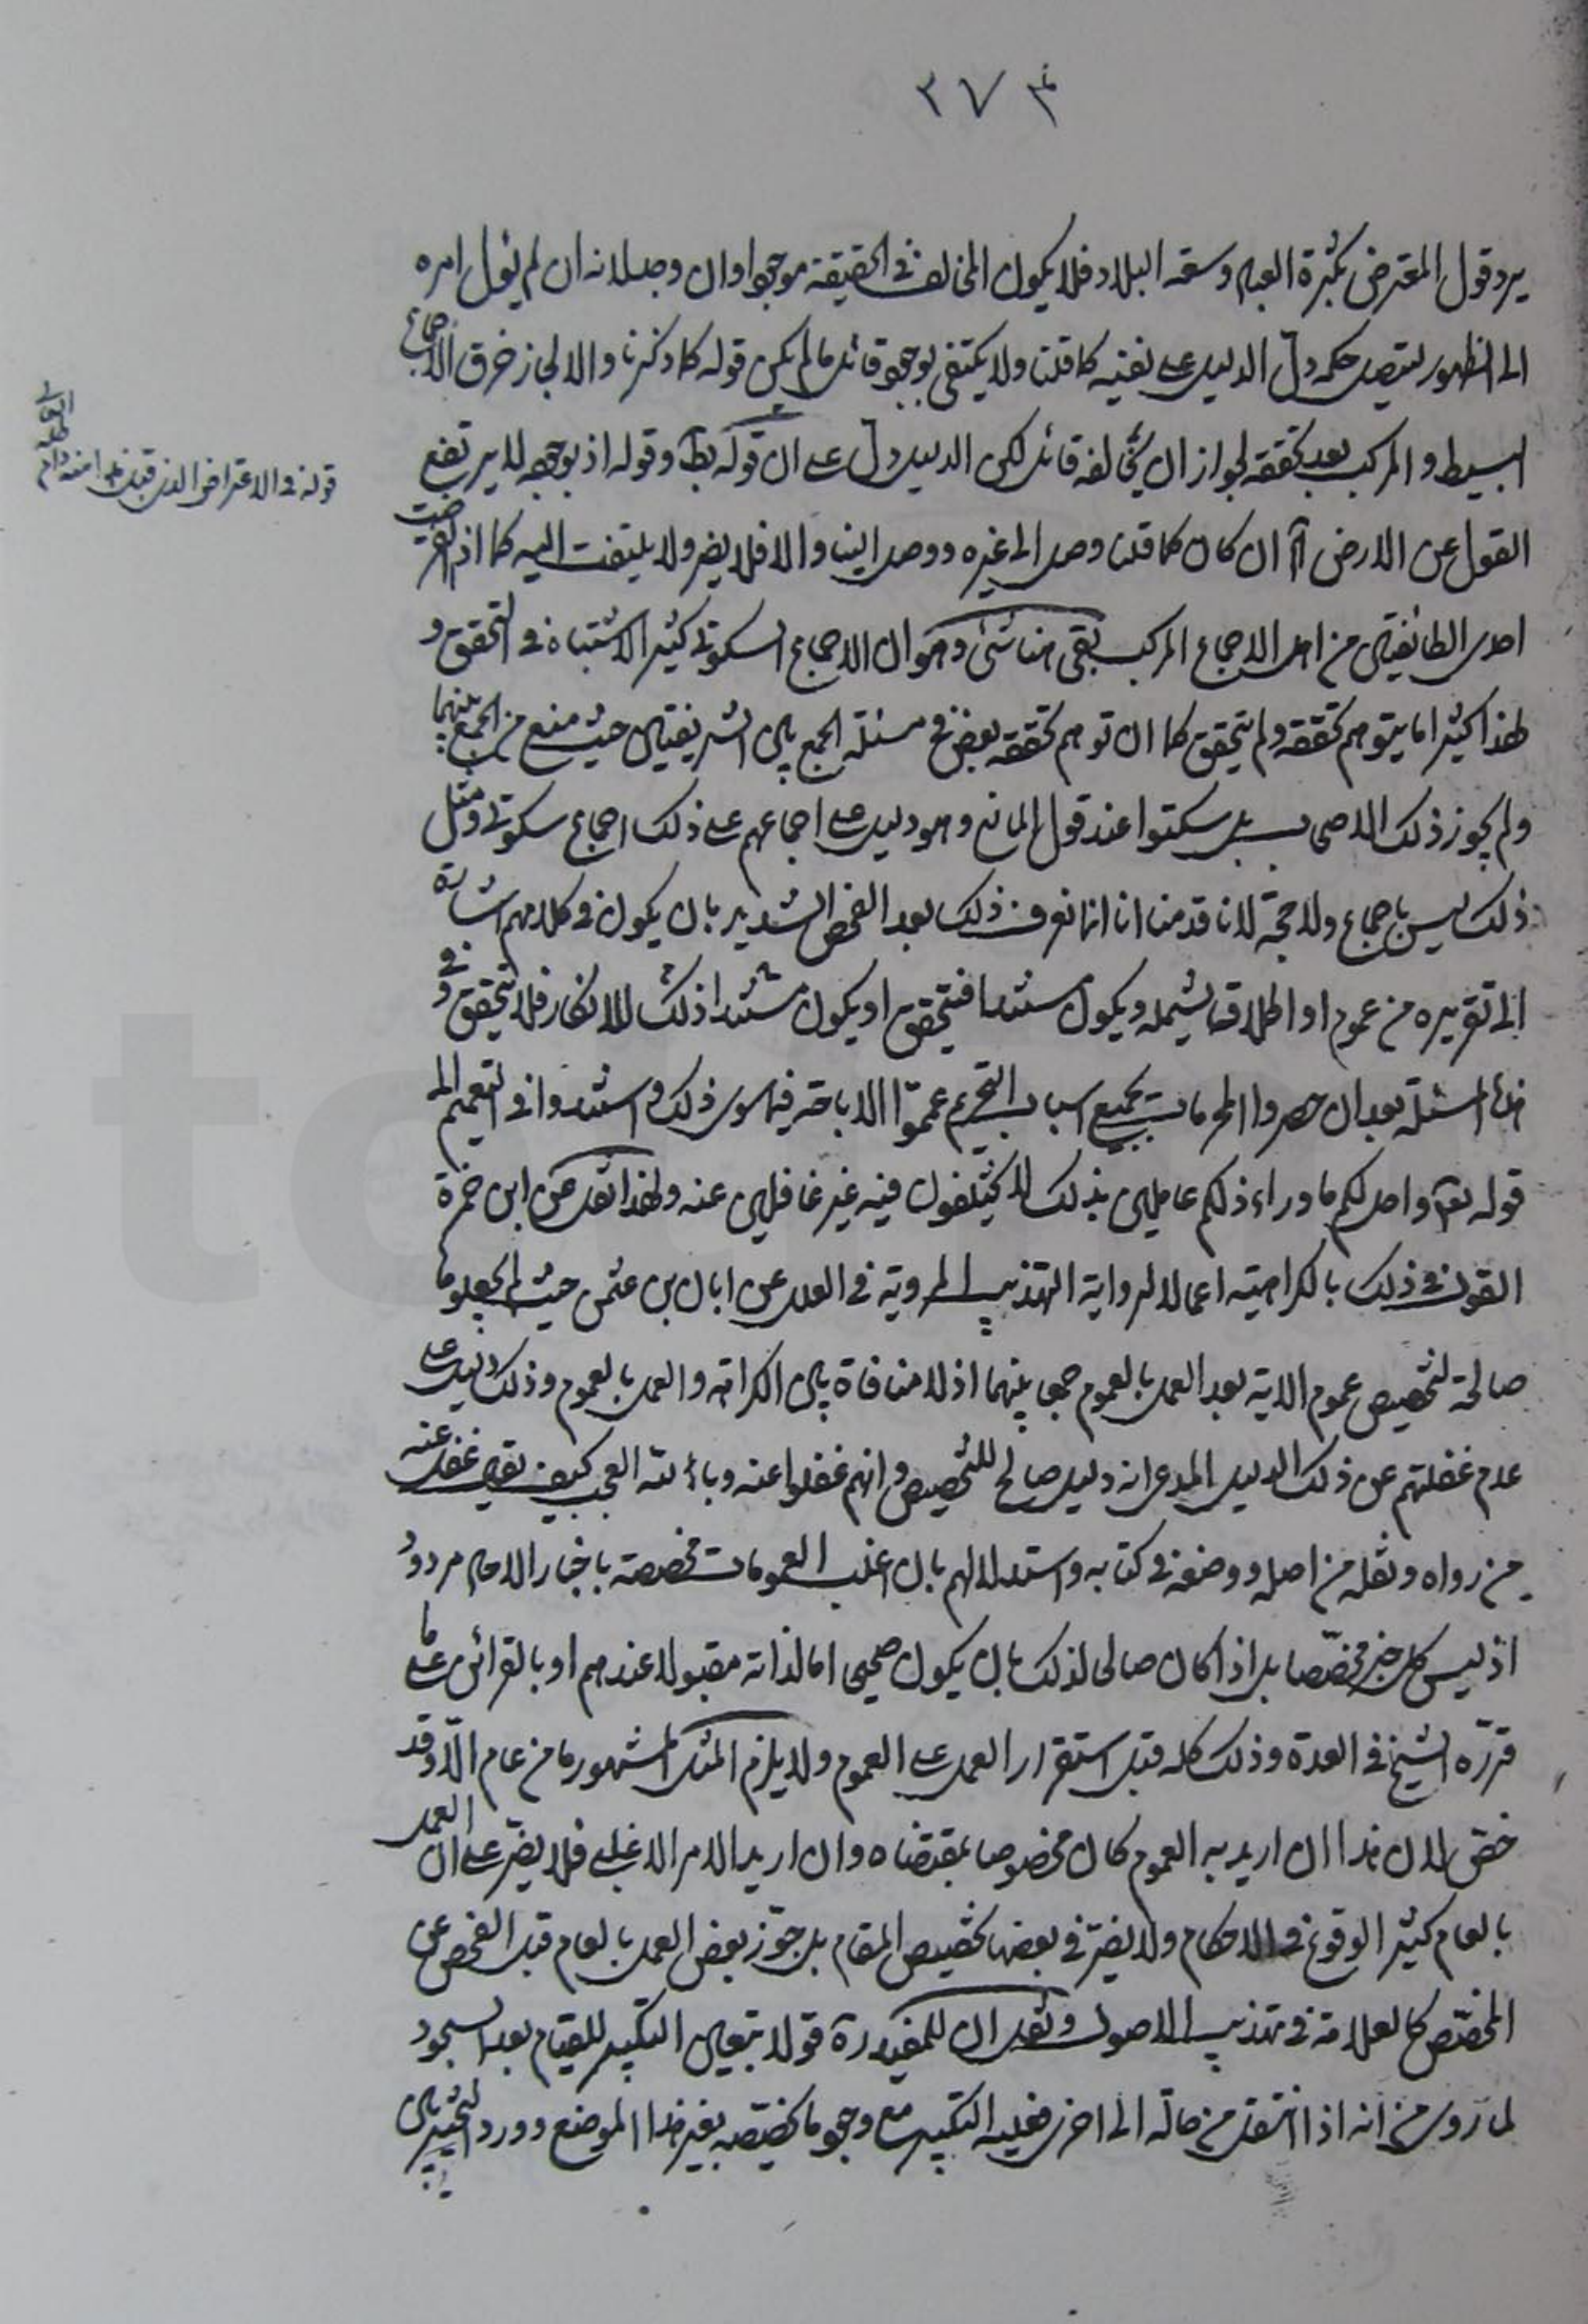 ٣٧٣
يرد قول المعترض بكثرة العباد وسعة البلاد فلا يكون المخالف في الحقيقة موجودا وان وجد لانه ان لم يؤل امره
الى الظهور ليتصل حكمه دل الدليل على نفيه كما قلت ولا يكتفى بوجود قائل ما لم يكن قوله كما ذكرنا والا لجاز خرق الاجماع
البسيط والمركب بعد تحققه لجواز ان يخالفه قائل لكن الدليل دل على ان قوله بط وقوله اذ بوجوده لا يرتفع
القول عن الارض آه ان كان كما قلت وصل الى غيره ووصل الينا والا فلا يضر ولا يلتفت اليه كما اذا انقرضت
احدى الطائفتين من اهل الاجماع المركب بقى هنا شئ وهو ان الاجماع السكوتي كثير الاشتباه في التحقق و
لهذا كثيرا ما يتوهم تحققه ولم يتحقق كما ان توهم تحققه بعض في مسئلة الجمع بين الشريفتين حيث منع من الجمع بينهما
ولم يجوز ذلك الاصحاب بل سكتوا عند قول المانع وهو دليل على اجماعهم على ذلك اجماع سكوتي ومثل
ذلك ليس باجماع ولا حجة لانا قد منا انا انما نعرف ذلك بعد الفحص الشديد بان يكون في كلامهم اشارة
الى تقريره من عموم او اطلاق يشمله ويكون مستندا فيتحقق او يكون مستندا ذلك للانكار فلا يتحقق وفي
هذه المسئلة بعد ان حصروا المحرمات بجميع اسباب التحريم عمموا الاباحة فيما سوى ذلك واستندوا في التعميم الى
قوله تعالى واحل لكم ما وراء ذلكم عاملين بذلك لا يختلفون فيه غير غافلين عنه ولهذا نقل عن ابن حمزة
القول في ذلك بالكراهية اعمالا لرواية التهذيب المروية في العلل عن ابان بن عثمن حيث لم يجعلوها
صالحة لتخصيص عموم الاية بعد العمل بالعموم جمعا بينهما اذ لا منافاة بين الكراهة والعمل بالعموم وذلك دليل على
عدم غفلتهم عن ذلك الدليل المدعى انه دليل صالح للتخصيص وانهم غفلوا عنه وبالله العجب كيف يقال غفل عنه
من رواه ونقله من اصله ووضعه في كتابه واستدلالهم بان اغلب العمومات مخصصة باخبار الاحاد مردود
اذ ليس كل خبر مخصصا بل اذا كان صالحا لذلك بان يكون صحيحا اما لذاته مقبولا عندهم او بالقرائن على ما
قرره الشيخ في العدة وذلك كله قبل استقرار العمل على العموم ولا يلزم المثل المشهور ما من عام الا وقد
خص لان هذا ان اريد به العموم كان مخصوصا بمقتضاه وان اريد الامر الاغلبي فلا يضر على ان العمل
بالعام كثير الوقوع في الاحكام ولا يضر في بعضها تخصيص المقام بل جوز بعض العمل بالعام قبل الفحص عن
المخصص كالعلامة في تهذيب الاصول ونقل ان للمفيد ره قولا بتعين التكبير للقيام بعد السجود
لما روى من انه اذا انتقل من حالة الى اخرى فعليه التكبير مع وجود ما يخصصه بغير هذا الموضع وورد التخيير بين
قوله في الاعتراض الذي قبل